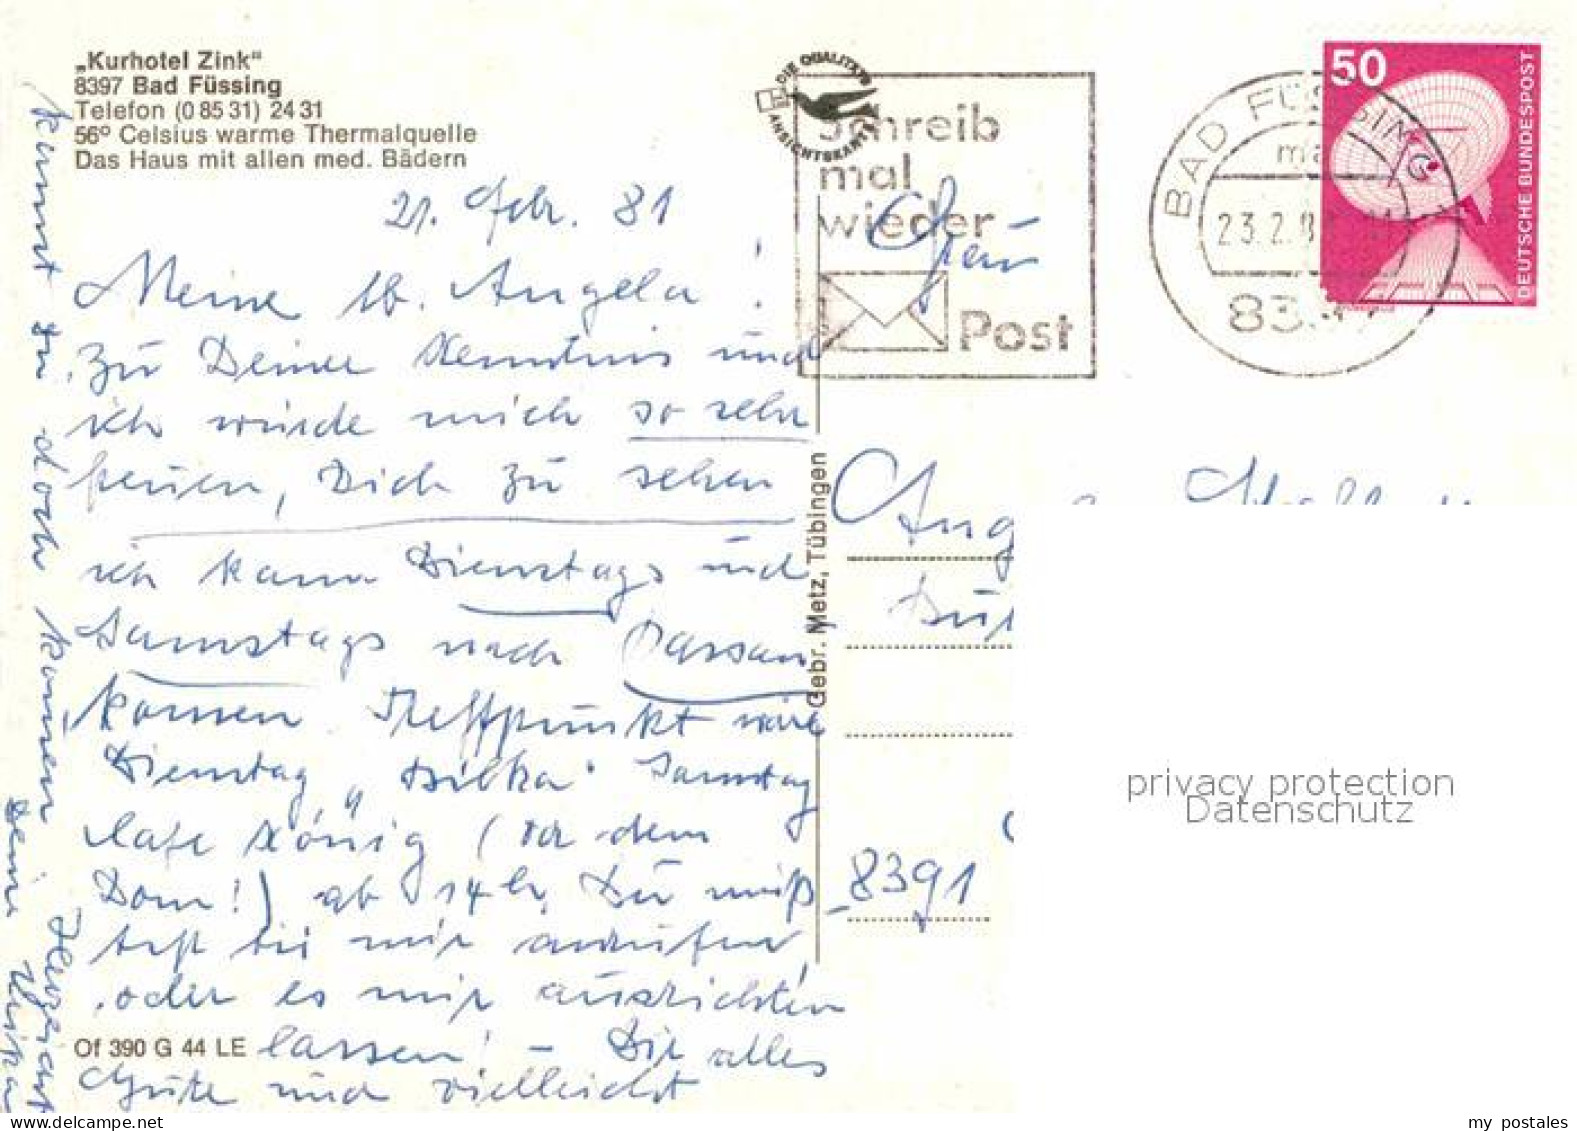 „Kurhotel Zink"
8397 Bad Füssing
Telefon (0 85 31) 24 31
56° Celsius warme Thermalquelle
Das Haus mit allen med. Bädern
21. Febr. 81
Meine lb. Angela!
Zu Deiner Kenntnis und
ich würde mich so sehr
freuen, Dich zu sehen
ich kann Dienstags und
Samstags nach Passau
kommen Treffpunkt wäre
Dienstag, „Dilka" Samstag
Cafe König (vor dem
Dom!) ab 14 h, Du mußt
bei mir anrufen
oder es mir ausrichten
lassen! – Dir alles
Gute und vielleicht
kannst Du doch kommen
Herzerast
Deine
Of 390 G 44 LE
Gebr. Metz, Tübingen
DIE QUALITÄTS
ANSICHTSKARTE
Schreib
mal
wieder
Post
BAD FÜSSING 1
23.2.8
83
50
DEUTSCHE BUNDESPOST
Frau
Ang
8391
privacy protection
Datenschutz
my postales